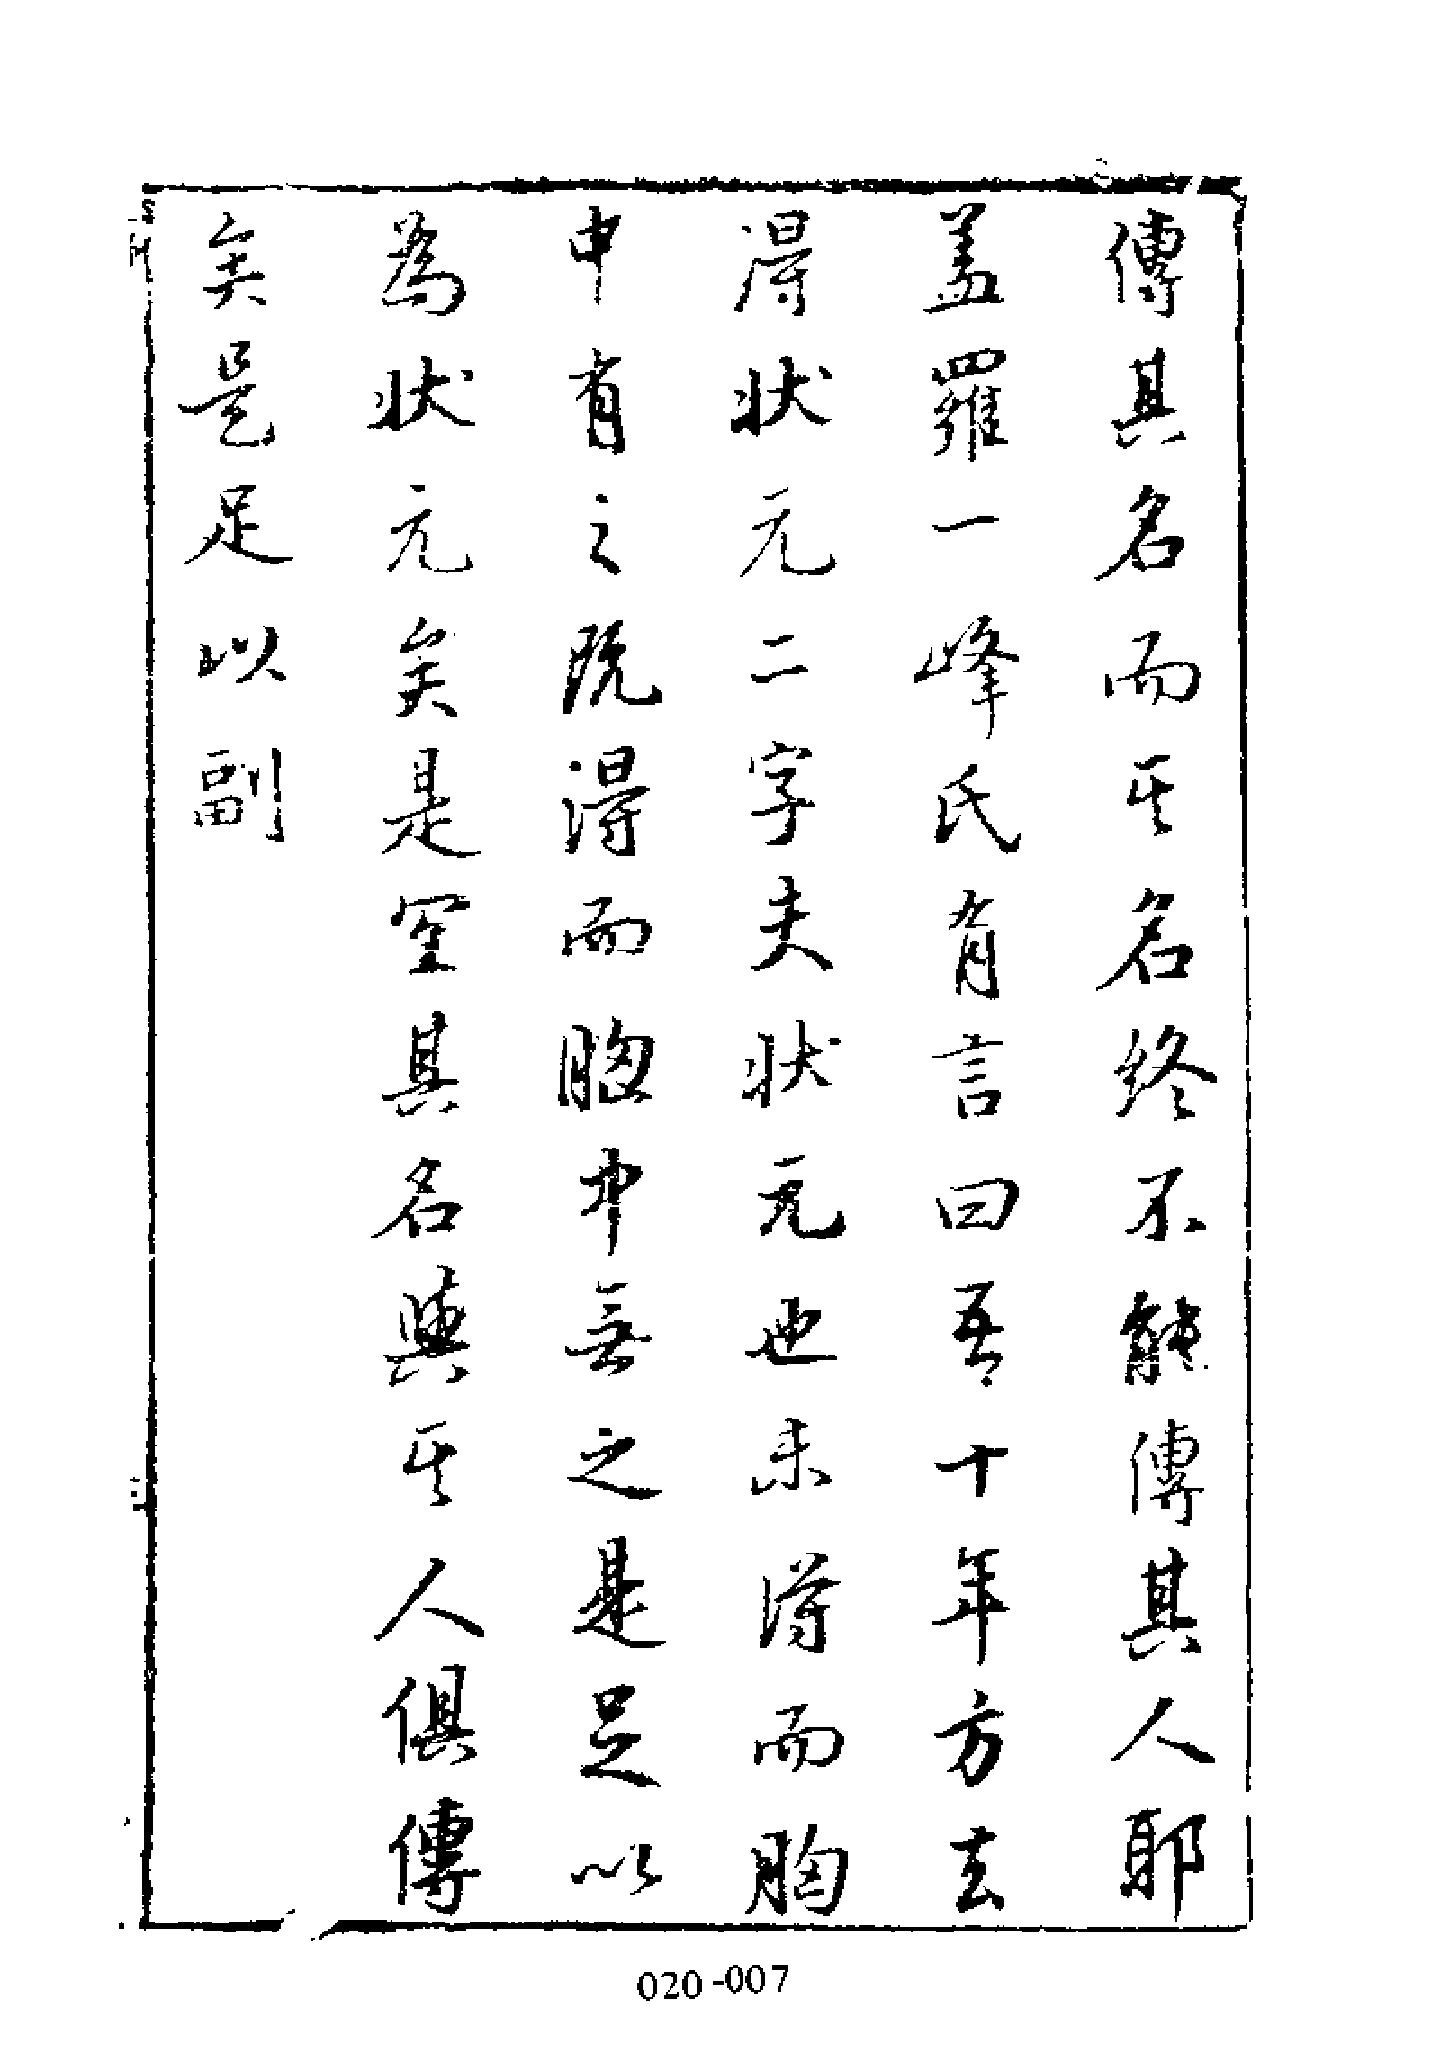 傳其名而其名終不能傳其人耶
蓋羅一峰氏有言曰吾十年方去
得狀元二字夫狀元也未得而胸
中有之既得而胸中無之是足以
為狀元矣是望其名與其人俱傳
矣是足以副
020-007